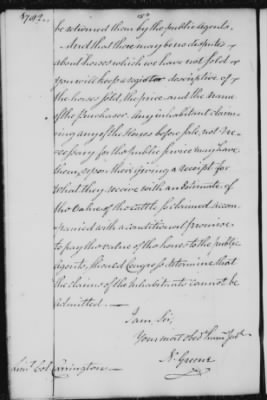 be returned them by the public Agents.
And that there may be no disputes
about horses which we have not sold
you will keep a register descriptive of
the horses sold, the price and the name
of the Purchaser. Any inhabitant claim-
ing any of the Horses before sold, not ne-
cessary for the public service may have
them, upon their giving a receipt for
what they receive with an Estimate of
the Value of the cattle so claimed accom-
panied with a conditional promise
to pay the value of the horses to the public
Agents, should Congress determine that
the claims of the Inhabitants cannot be
admitted.
I am, Sir,
Your most obed.t humb Serv.t
N. Greene
Lieut. Col. Carrington